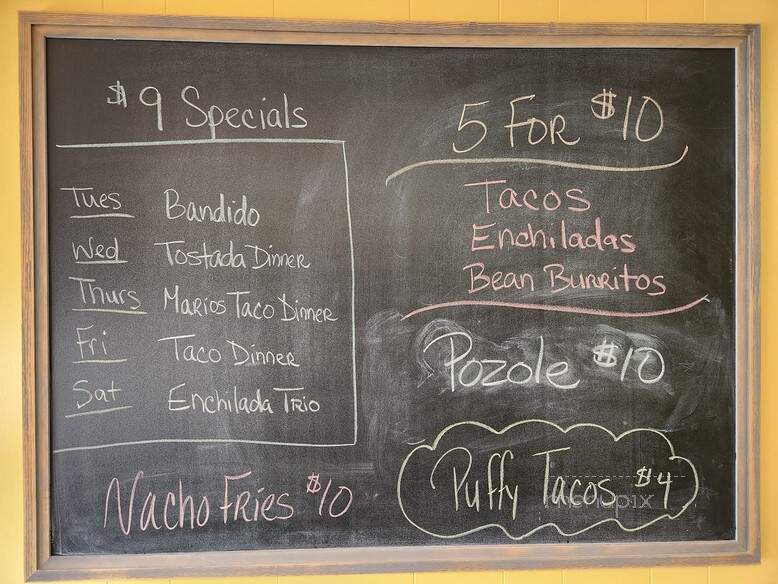 $9 Specials
Tues Bandido
Wed Tostada Dinner
Thurs Marios Taco Dinner
Fri Taco Dinner
Sat Enchilada Trio
Nacho Fries $10
5 FOR $10
Tacos
Enchiladas
Bean Burritos
Pozole $10
Puffy Tacos $4
menupix